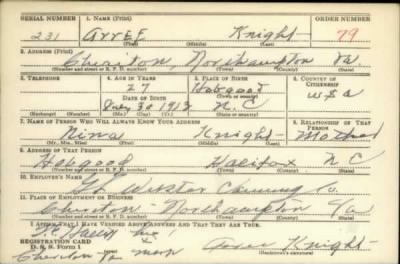 SERIAL NUMBER 1. NAME (Print) ORDER NUMBER
231 Arree Knight 79
(First) (Middle) (Last)
2. ADDRESS (Print)
Cheriton, Northampton Va.
(Number and street or R. F. D. number) (Town) (County) (State)
3. TELEPHONE 4. AGE IN YEARS 5. PLACE OF BIRTH 6. COUNTRY OF CITIZENSHIP
27 Hobgood
DATE OF BIRTH (Town or county)
30 1913 N.C U S A
(Exchange) (Number) (Mo.) (Day) (Yr.) (State or country)
7. NAME OF PERSON WHO WILL ALWAYS KNOW YOUR ADDRESS 8. RELATIONSHIP OF THAT PERSON
Nina Knight Mother
(Mr., Mrs., Miss) (First) (Middle) (Last)
9. ADDRESS OF THAT PERSON
Hobgood Halifax N C
(Number and street or R. F. D. number) (Town) (County) (State)
10. EMPLOYER'S NAME
Webster Canning Co.
11. PLACE OF EMPLOYMENT OR BUSINESS
Cheriton - Northampton Va
(Number and street or R. F. D. number) (Town) (County) (State)
I AFFIRM THAT I HAVE VERIFIED ABOVE ANSWERS AND THAT THEY ARE TRUE.
his
REGISTRATION CARD x
D. S. S. Form 1 Arree Knight
Cheriton Va mark (Registrant's signature)